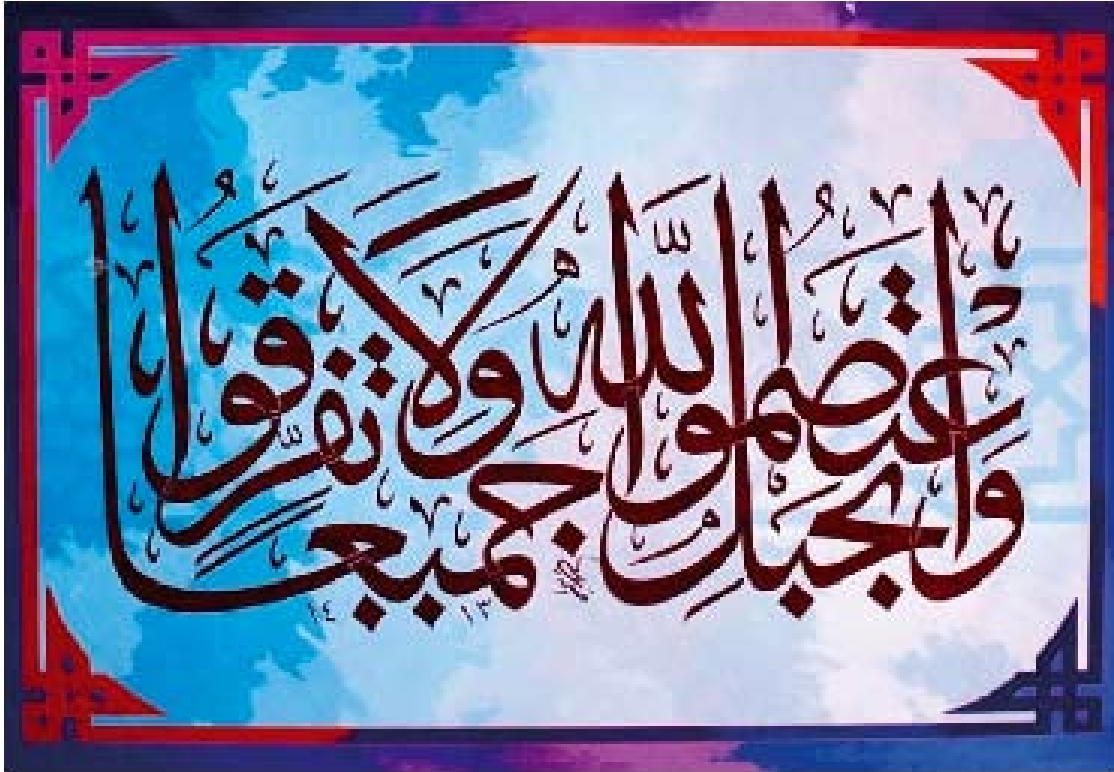 وَاعتصموا بحبلِ اللّه جميعا ولا تفرّقوا
١٣ ١٤